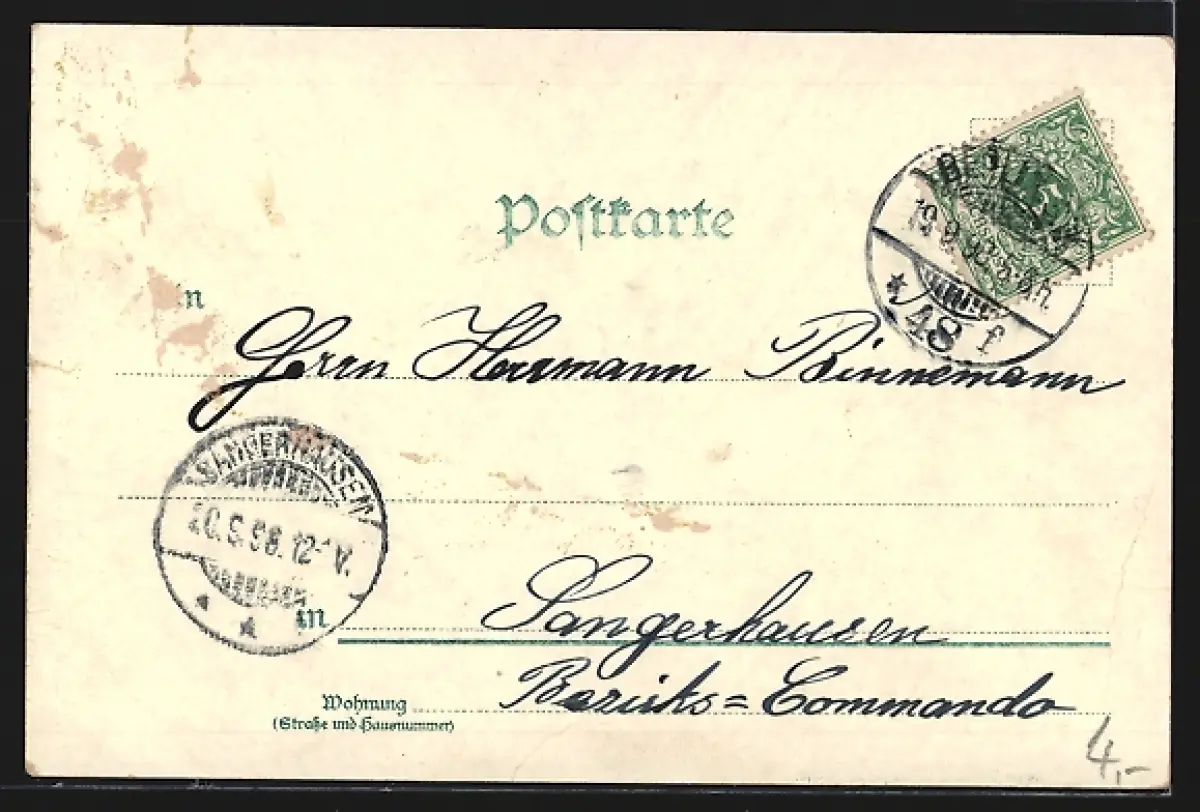 Postkarte
5
19.9.98. 5-6 N.
48 f
n
Herrn Hermann Binnemann
SANGERHAUSEN
20.9.98. 12-1V.
in Sangerhausen
Bezirks=Commando
Wohnung
(Straße und Hausnummer)
4,-